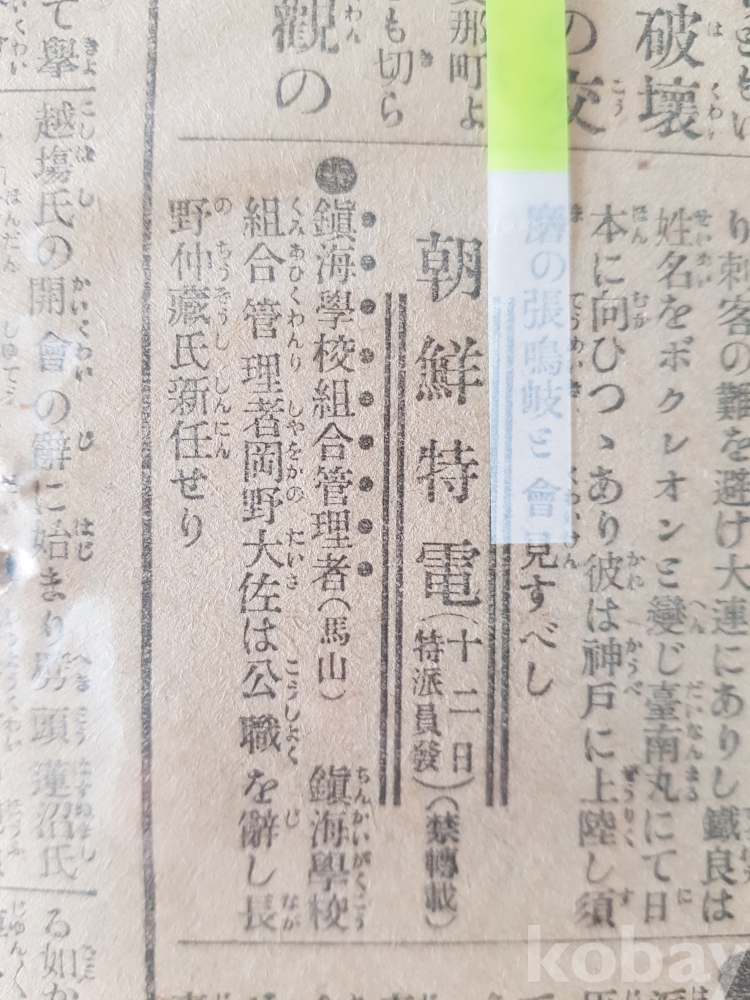 破壞
の交
支那町よ
も切ら
観の
り刺客の難を避け大連にありし鐵良は
姓名をボクレオンと變じ臺南丸にて日
本に向ひつゝあり彼は神戸に上陸し須
磨の張鳴岐と會見すべし
朝鮮特電(十二日特派員發)(禁轉載)
●鎭海學校組合管理者(馬山) 鎭海學校
組合管理者岡野大佐は公職を辭し長
野仲藏氏新任せり
て擧
越塲氏の開會の辭に始まり劈頭蓮沼氏
る如か
kobay